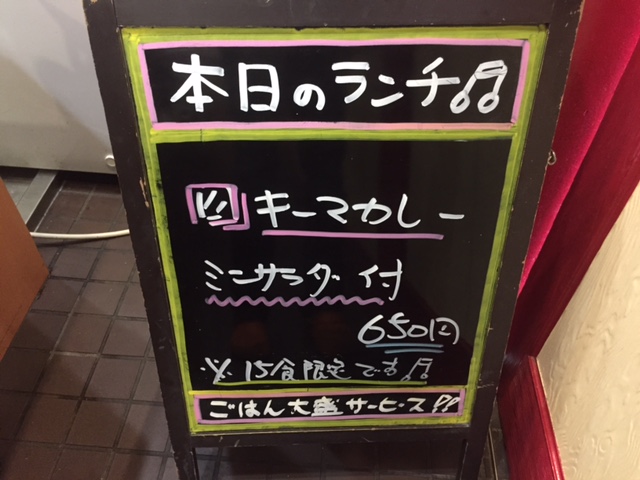 本日のランチ♫
キーマカレー
ミニサラダ付
650円
※15食限定です♫
ごはん大盛サービス!!